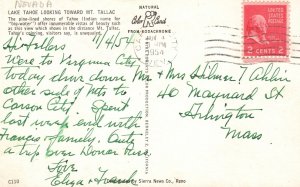 NEVADA
LAKE TAHOE LOOKING TOWARD MT. TALLAC
The pine-lined shores of Tahoe (Indian name for
"big water") offer innumerable views of beauty such
as this view which shows in the distance Mt. Tallac,
Tahoe's crowning, visitors say, a snowpatch
NATURAL
Color
FROM KODACHROME
1954
2 CENTS 2
Hi Fellers 7/4/54
Were to Virginia City
today drove down
other side of Mts to
Carson City. Spent
last week end with
Francis family. Quite
a trip over Donner Pass.
Love
Eliza + Frank
Mr + Mrs Hilmer T.
40 Maynard St
Arlington
Mass
C110
by Sierra News Co., Reno